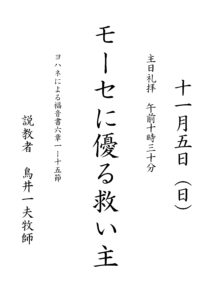 十一月五日（日）
主日礼拝　午前十時三十分
モーセに優る救い主
ヨハネによる福音書六章一ー十五節
説教者　鳥井一夫牧師